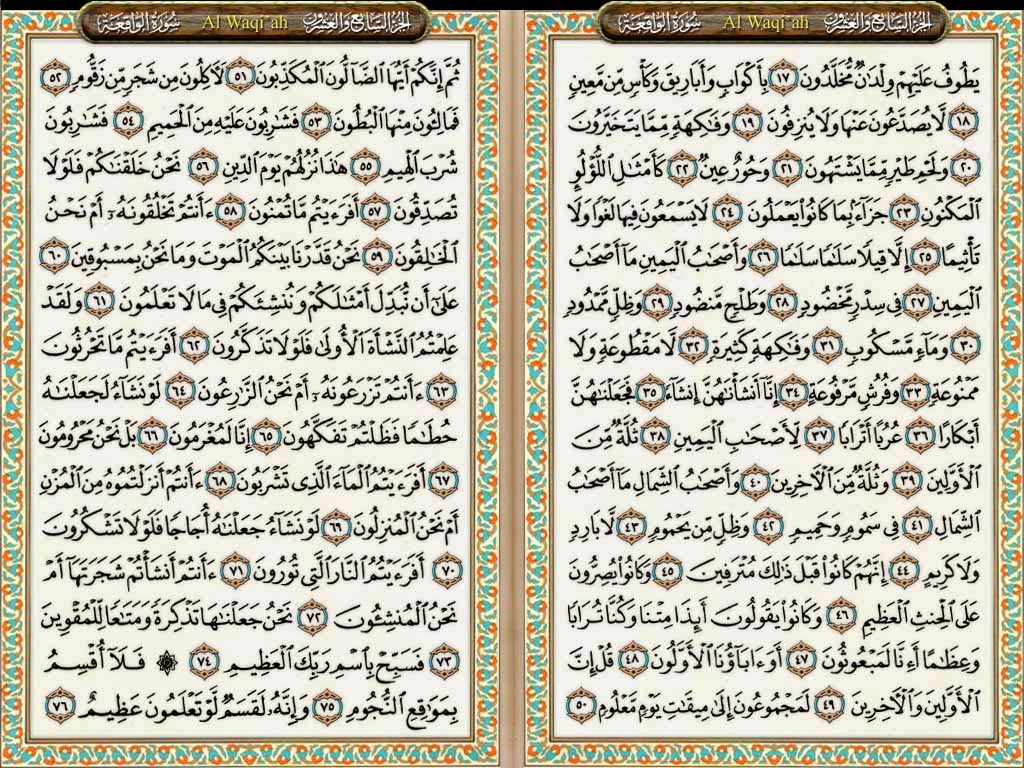 الجزء السابع والعشرون Al Waqi ah سورة الواقعة
يَطُوفُ عَلَيْهِمْ وِلْدَٰنٌ مُّخَلَّدُونَ ١٧ بِأَكْوَابٍ وَأَبَارِيقَ وَكَأْسٍ مِّن مَّعِينٍ
١٨ لَّا يُصَدَّعُونَ عَنْهَا وَلَا يُنزِفُونَ ١٩ وَفَٰكِهَةٍ مِّمَّا يَتَخَيَّرُونَ
٢٠ وَلَحْمِ طَيْرٍ مِّمَّا يَشْتَهُونَ ٢١ وَحُورٌ عِينٌ ٢٢ كَأَمْثَٰلِ اللُّؤْلُؤِ
الْمَكْنُونِ ٢٣ جَزَاءً بِمَا كَانُوا يَعْمَلُونَ ٢٤ لَا يَسْمَعُونَ فِيهَا لَغْوًا وَلَا
تَأْثِيمًا ٢٥ إِلَّا قِيلًا سَلَٰمًا سَلَٰمًا ٢٦ وَأَصْحَٰبُ الْيَمِينِ مَا أَصْحَٰبُ
الْيَمِينِ ٢٧ فِي سِدْرٍ مَّخْضُودٍ ٢٨ وَطَلْحٍ مَّنضُودٍ ٢٩ وَظِلٍّ مَّمْدُودٍ
٣٠ وَمَاءٍ مَّسْكُوبٍ ٣١ وَفَٰكِهَةٍ كَثِيرَةٍ ٣٢ لَّا مَقْطُوعَةٍ وَلَا
مَمْنُوعَةٍ ٣٣ وَفُرُشٍ مَّرْفُوعَةٍ ٣٤ إِنَّا أَنشَأْنَٰهُنَّ إِنشَاءً ٣٥ فَجَعَلْنَٰهُنَّ
أَبْكَارًا ٣٦ عُرُبًا أَتْرَابًا ٣٧ لِّأَصْحَٰبِ الْيَمِينِ ٣٨ ثُلَّةٌ مِّنَ
الْأَوَّلِينَ ٣٩ وَثُلَّةٌ مِّنَ الْآخِرِينَ ٤٠ وَأَصْحَٰبُ الشِّمَالِ مَا أَصْحَٰبُ
الشِّمَالِ ٤١ فِي سَمُومٍ وَحَمِيمٍ ٤٢ وَظِلٍّ مِّن يَحْمُومٍ ٤٣ لَّا بَارِدٍ
وَلَا كَرِيمٍ ٤٤ إِنَّهُمْ كَانُوا قَبْلَ ذَٰلِكَ مُتْرَفِينَ ٤٥ وَكَانُوا يُصِرُّونَ
عَلَى الْحِنثِ الْعَظِيمِ ٤٦ وَكَانُوا يَقُولُونَ أَئِذَا مِتْنَا وَكُنَّا تُرَابًا
وَعِظَٰمًا أَءِنَّا لَمَبْعُوثُونَ ٤٧ أَوَءَابَاؤُنَا الْأَوَّلُونَ ٤٨ قُلْ إِنَّ
الْأَوَّلِينَ وَالْآخِرِينَ ٤٩ لَمَجْمُوعُونَ إِلَىٰ مِيقَٰتِ يَوْمٍ مَّعْلُومٍ ٥٠
الجزء السابع والعشرون Al Waqi ah سورة الواقعة
ثُمَّ إِنَّكُمْ أَيُّهَا الضَّالُّونَ الْمُكَذِّبُونَ ٥١ لَآكِلُونَ مِن شَجَرٍ مِّن زَقُّومٍ ٥٢
فَمَالِئُونَ مِنْهَا الْبُطُونَ ٥٣ فَشَٰرِبُونَ عَلَيْهِ مِنَ الْحَمِيمِ ٥٤ فَشَٰرِبُونَ
شُرْبَ الْهِيمِ ٥٥ هَٰذَا نُزُلُهُمْ يَوْمَ الدِّينِ ٥٦ نَحْنُ خَلَقْنَٰكُمْ فَلَوْلَا
تُصَدِّقُونَ ٥٧ أَفَرَءَيْتُم مَّا تُمْنُونَ ٥٨ ءَأَنتُمْ تَخْلُقُونَهُ أَمْ نَحْنُ
الْخَٰلِقُونَ ٥٩ نَحْنُ قَدَّرْنَا بَيْنَكُمُ الْمَوْتَ وَمَا نَحْنُ بِمَسْبُوقِينَ ٦٠
عَلَىٰ أَن نُّبَدِّلَ أَمْثَٰلَكُمْ وَنُنشِئَكُمْ فِي مَا لَا تَعْلَمُونَ ٦١ وَلَقَدْ
عَلِمْتُمُ النَّشْأَةَ الْأُولَىٰ فَلَوْلَا تَذَكَّرُونَ ٦٢ أَفَرَءَيْتُم مَّا تَحْرُثُونَ
٦٣ ءَأَنتُمْ تَزْرَعُونَهُ أَمْ نَحْنُ الزَّٰرِعُونَ ٦٤ لَوْ نَشَاءُ لَجَعَلْنَٰهُ
حُطَٰمًا فَظَلْتُمْ تَفَكَّهُونَ ٦٥ إِنَّا لَمُغْرَمُونَ ٦٦ بَلْ نَحْنُ مَحْرُومُونَ
٦٧ أَفَرَءَيْتُمُ الْمَاءَ الَّذِي تَشْرَبُونَ ٦٨ ءَأَنتُمْ أَنزَلْتُمُوهُ مِنَ الْمُزْنِ
أَمْ نَحْنُ الْمُنزِلُونَ ٦٩ لَوْ نَشَاءُ جَعَلْنَٰهُ أُجَاجًا فَلَوْلَا تَشْكُرُونَ
٧٠ أَفَرَءَيْتُمُ النَّارَ الَّتِي تُورُونَ ٧١ ءَأَنتُمْ أَنشَأْتُمْ شَجَرَتَهَا أَمْ
نَحْنُ الْمُنشِئُونَ ٧٢ نَحْنُ جَعَلْنَٰهَا تَذْكِرَةً وَمَتَٰعًا لِّلْمُقْوِينَ
٧٣ فَسَبِّحْ بِاسْمِ رَبِّكَ الْعَظِيمِ ٧٤ ۞ فَلَا أُقْسِمُ
بِمَوَٰقِعِ النُّجُومِ ٧٥ وَإِنَّهُ لَقَسَمٌ لَّوْ تَعْلَمُونَ عَظِيمٌ ٧٦